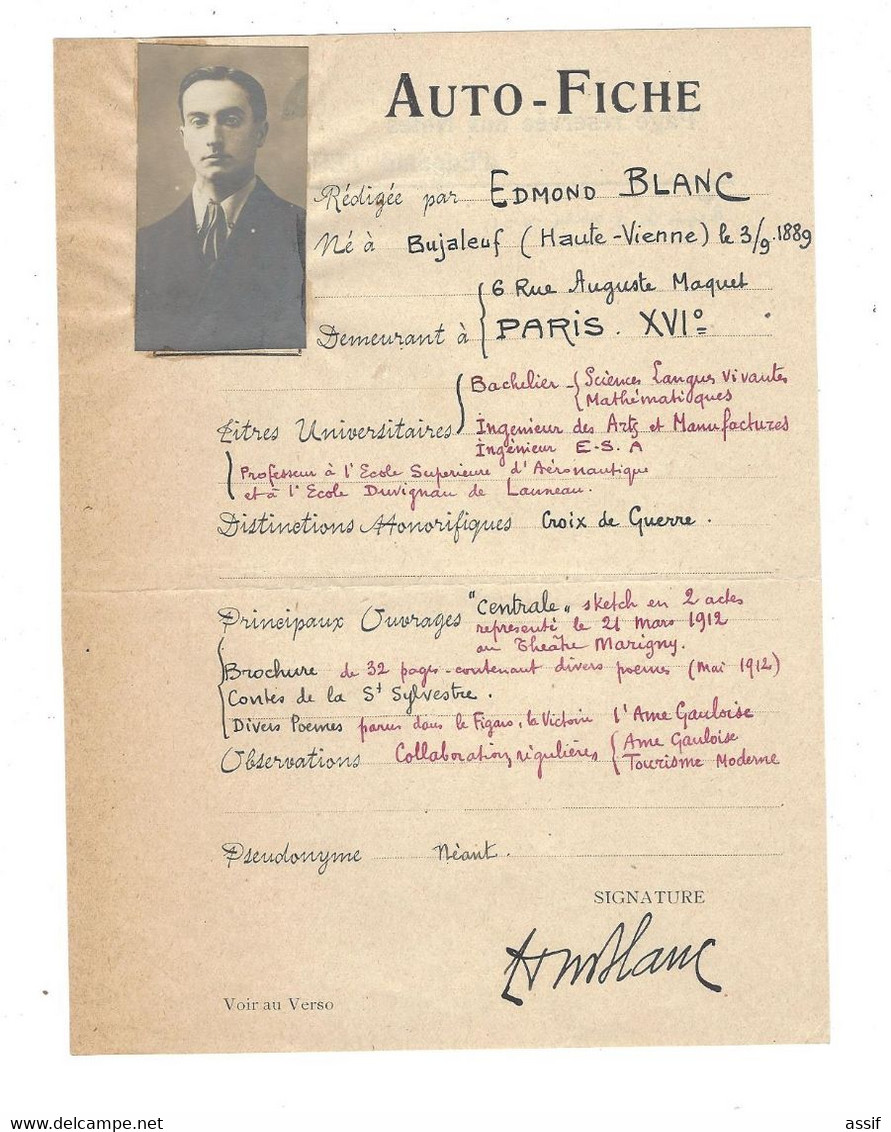 AUTO-FICHE
Rédigée par EDMOND BLANC
Né à Bujaleuf (Haute-Vienne) le 3/9.1889
6 Rue Auguste Maquet
Demeurant à PARIS. XVIº
Bachelier - Sciences Langues Vivantes
Mathématiques
Titres Universitaires Ingenieur des Arts et Manufactures
Ingénieur E-S.A
Professeur à l'Ecole Superieure d'Aéronautique
et à l'Ecole Duvignau de Lanneau.
Distinctions Honorifiques Croix de Guerre.
"Centrale" sketch en 2 actes
Principaux Ouvrages représenté le 21 Mars 1912
au Théâtre Marigny.
Brochure de 32 pages-contenant divers poemes (Mai 1912)
Contes de la St Sylvestre.
Divers Poemes parus dans le Figaro, la Victoire l'Ame Gauloise
Observations Collaborations régulières Ame Gauloise
Tourisme Moderne
Pseudonyme Néant.
SIGNATURE
Blanc
Voir au Verso
www.delcampe.net
assif